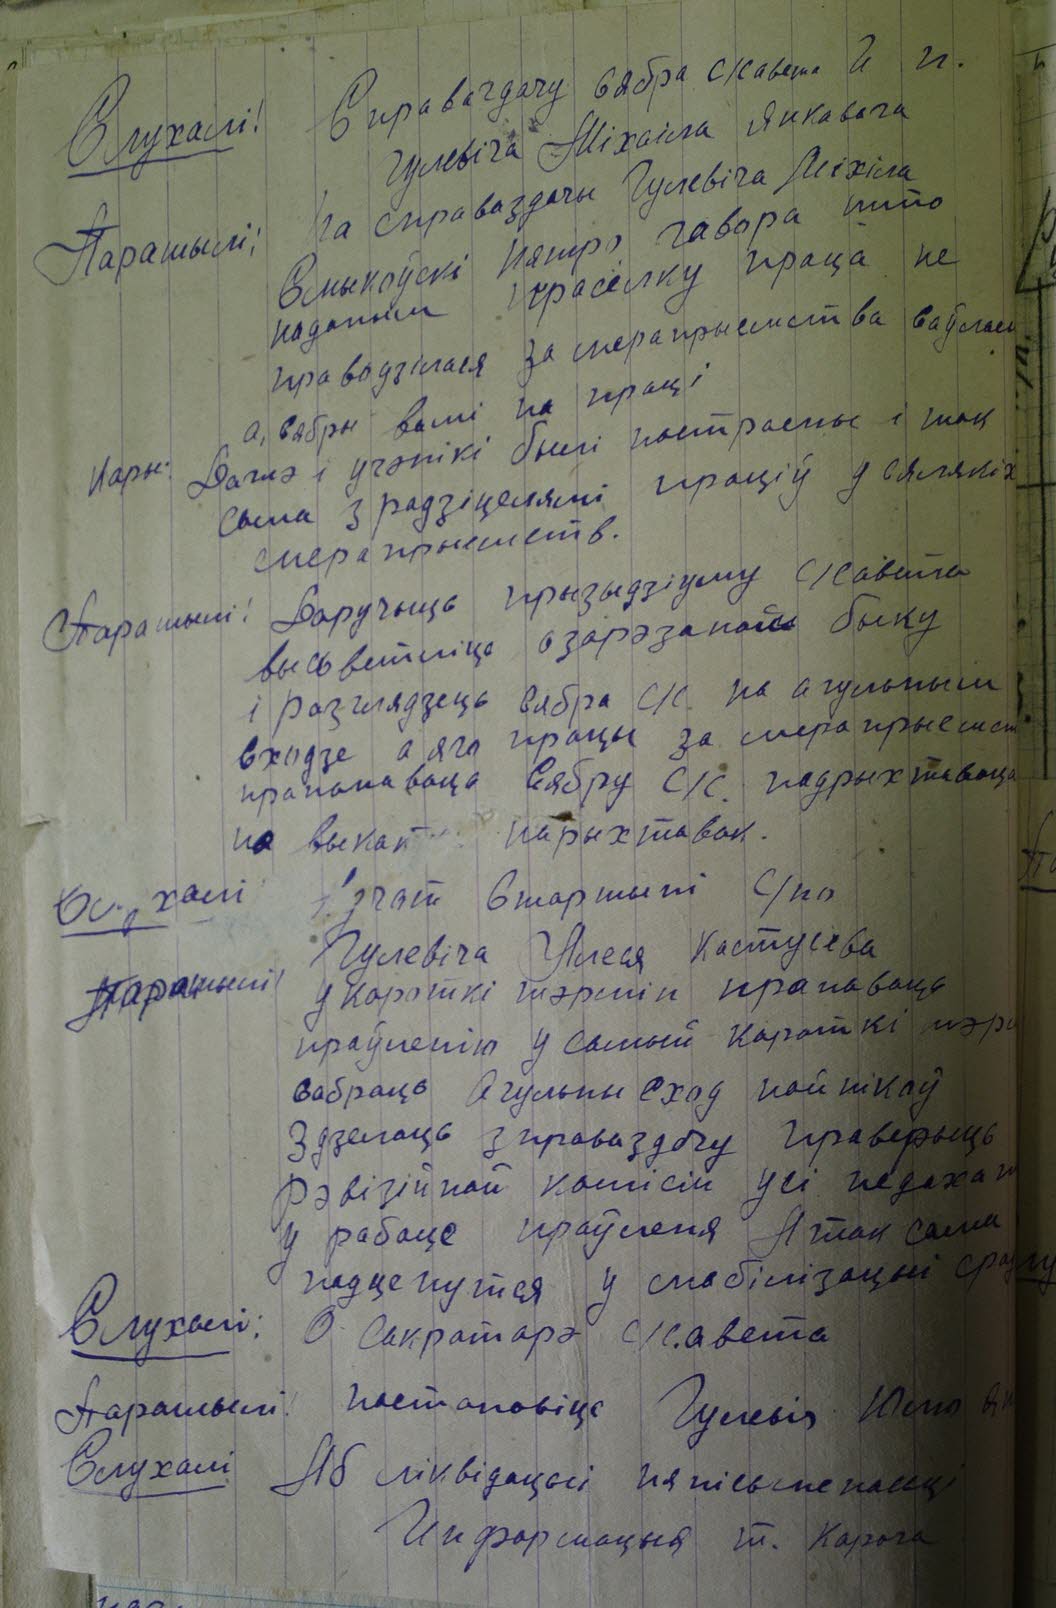 Слухалі! Справаздачу сябра с/савета И н.
Гулевіча Міхаіла Янкавача
Парашылі: па справаздачы Гулевіча Міхіла
Смыкоўскі Пятро гавора што
паданым прасёлку праца не
праводзілася за мерапрыемства
а, сябры валі на праці
Пары: Далэ і учэнікі былі настраены і так
сама з радзіцелямі праціў усялякіх
мерапрыемств.
Парашылі! Даручыць прызыдзіуму с/савета
высьветліць азарэзаном быку
і разглядзець сябра с/с. на агульным
входзе а яго працы за мерапрыемст
прапанаваць сябру с/с. падрыхтаваца
на нарыхтавак.
учот Старшыні с/по
Гулевіча Алеся Кастусева
Парашылі! у кароткі тэрмін прапаваць
праўленію у самый кароткі тэрм
сабраць Агульны сход пайшчікоў
Здзелаць зправаздачу праверыць
рэвізійной комісіи усі недахат
у рабоце праўленя А так сама
падценутся у мабілізацыі сродку
Слухалі: О Сакратарэ с/с.авета
Парашылі! пастановіць Гулевіч
Слухалі Аб ліквідацыі няпісьменасці
Информацыя т. Карача